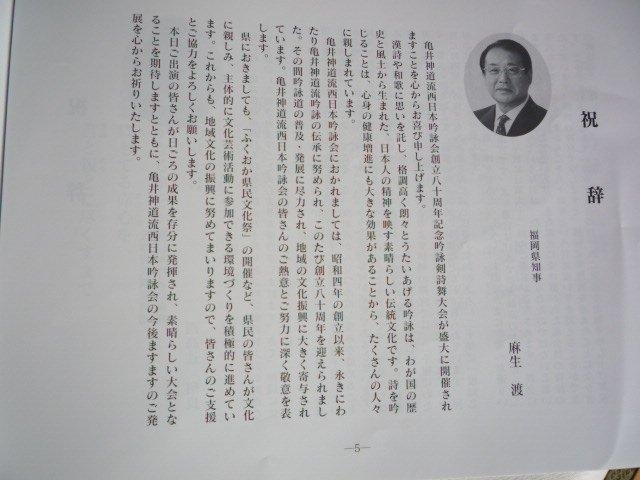 祝辞
福岡県知事
麻生 渡
亀井神道流西日本吟詠会創立八十周年記念吟詠剣詩舞大会が盛大に開催され
ますことを心からお喜び申し上げます。
漢詩や和歌に思いを託し、格調高く朗々とうたいあげる吟詠は、わが国の歴
史と風土から生まれた、日本人の精神を映す素晴らしい伝統文化です。詩を吟
じることは、心身の健康増進にも大きな効果があることから、たくさんの人々
に親しまれています。
亀井神道流西日本吟詠会におかれましては、昭和四年の創立以来、永きにわ
たり亀井神道流吟詠の伝承に努められ、このたび創立八十周年を迎えられまし
た。その間吟詠道の普及・発展に尽力され、地域の文化振興に大きく寄与され
ています。亀井神道流西日本吟詠会の皆さんのご熱意とご努力に深く敬意を表
します。
県におきましても、「ふくおか県民文化祭」の開催など、県民の皆さんが文化
に親しみ、主体的に文化芸術活動に参加できる環境づくりを積極的に進めてい
ます。これからも、地域文化の振興に努めてまいりますので、皆さんのご支援
とご協力をよろしくお願いします。
本日ご出演の皆さんが日ごろの成果を存分に発揮され、素晴らしい大会とな
ることを期待しますとともに、亀井神道流西日本吟詠会の今後ますますのご発
展を心からお祈りいたします。
―5―